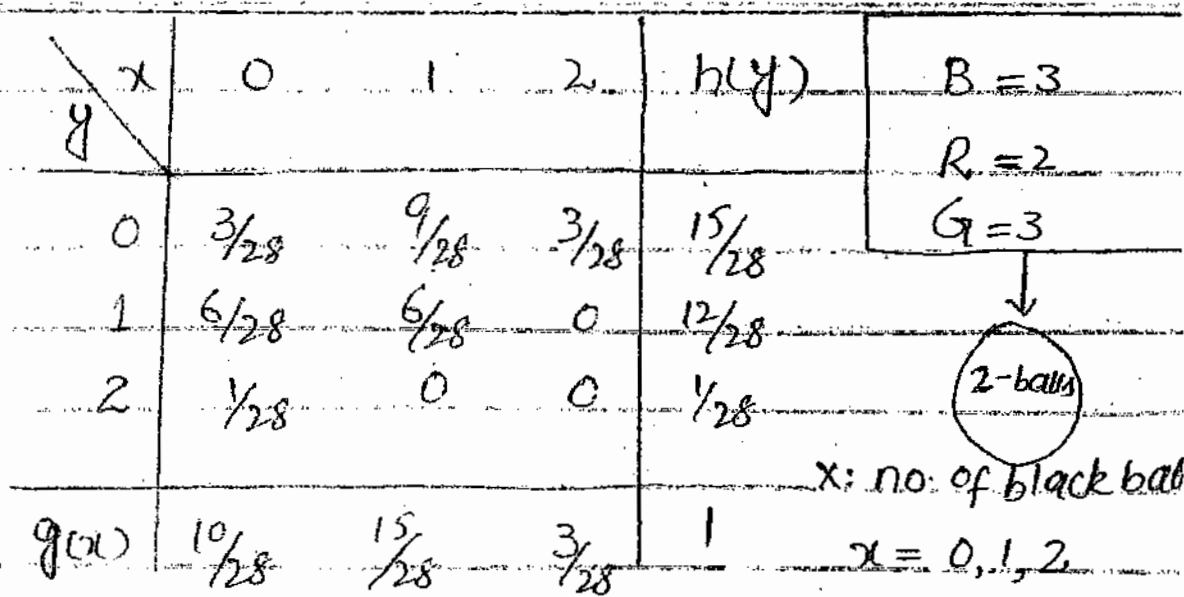 x 0 1 2 h(y)
y
0 3/28 9/28 3/28 15/28
1 6/28 6/28 0 12/28
2 1/28 0 0 1/28
g(x) 10/28 15/28 3/28 1
B = 3
R = 2
G = 3
2-balls
x: no. of black ball
x = 0, 1, 2